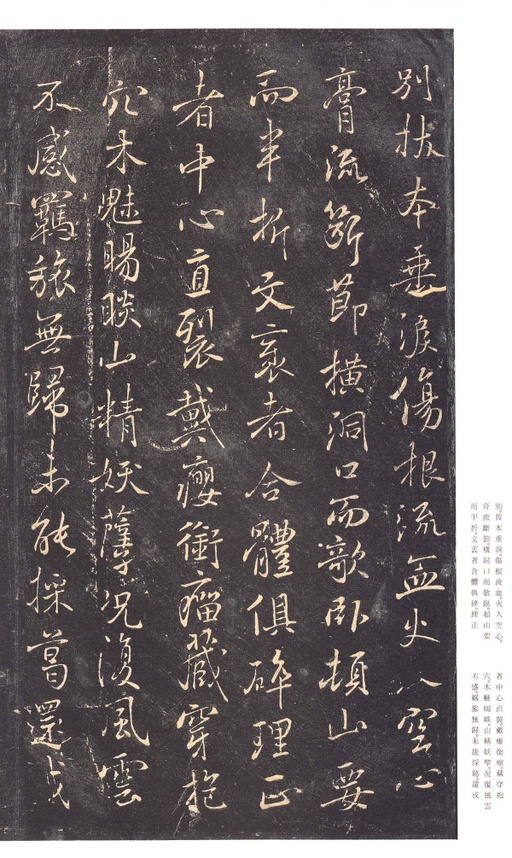 別拔本垂淚傷根流血火入空心
膏流斷節橫洞口而欹臥頓山要
而半折文衺者合體俱碎理正
者中心直裂戴癭銜瘤藏穿抱
穴木魅睗睒山精妖孽況復風雲
不感羈旅無歸未能採葛還成
別拔本垂淚傷根流血火入空心
膏流斷節橫洞口而欹臥頓山要
而半折文衺者合體俱碎理正
者中心直裂戴癭銜瘤藏穿抱
穴木魅睗睒山精妖孽況復風雲
不感羈旅無歸未能採葛還成